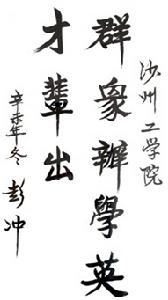 沙州工学院
群衆辦學英
才輩出
辛未年冬 彭冲